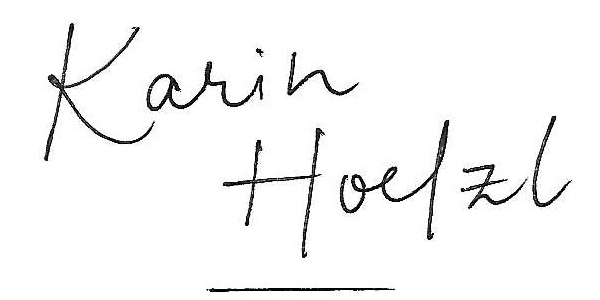 Karin
Hoelzl